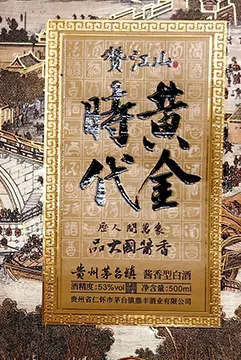 贊江山
黃金
時代
歷人間萬象
品大國醬香
贵州茅台镇 酱香型白酒
酒精度:53%vol 净含量:500ml
贵州省仁怀市茅台镇鼎丰酒业有限公司